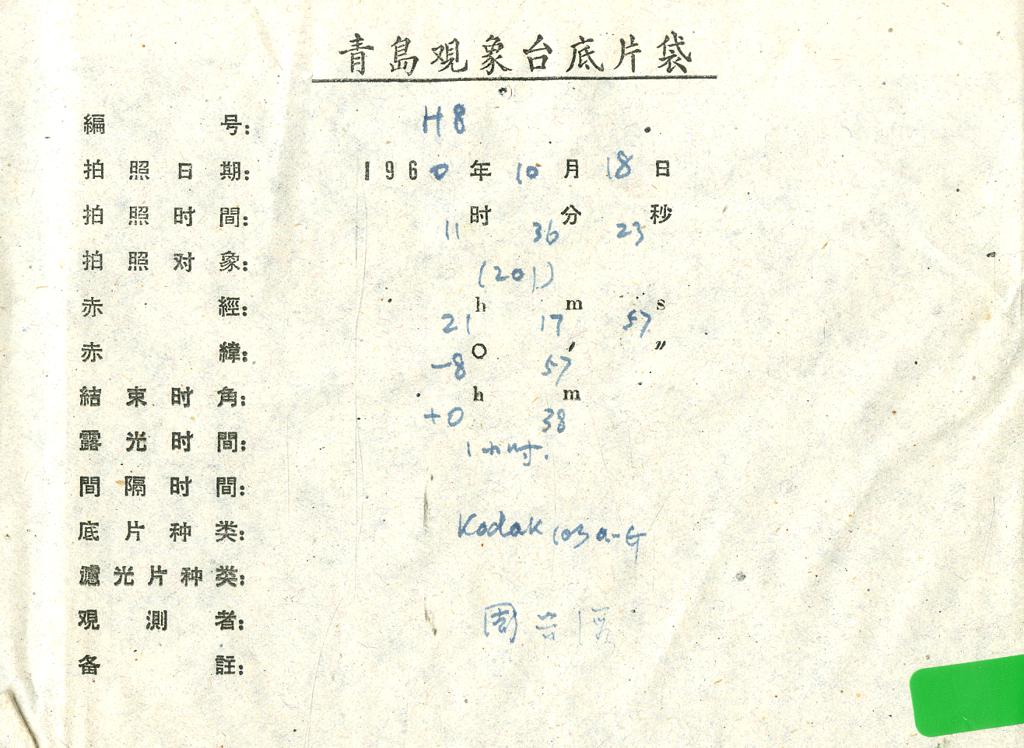 青島观象台底片袋
編号: H8
拍照日期: 1960年10月18日
拍照时間: 11时36分23秒
拍照对象: (201)
赤經: 21h 17m 57s
赤緯: -8° 57′ ″
結束时角: +0h 38m
露光时間: 1小时.
間隔时間:
底片种类: Kodak 103a-G
濾光片种类:
观測者: 周
备註: